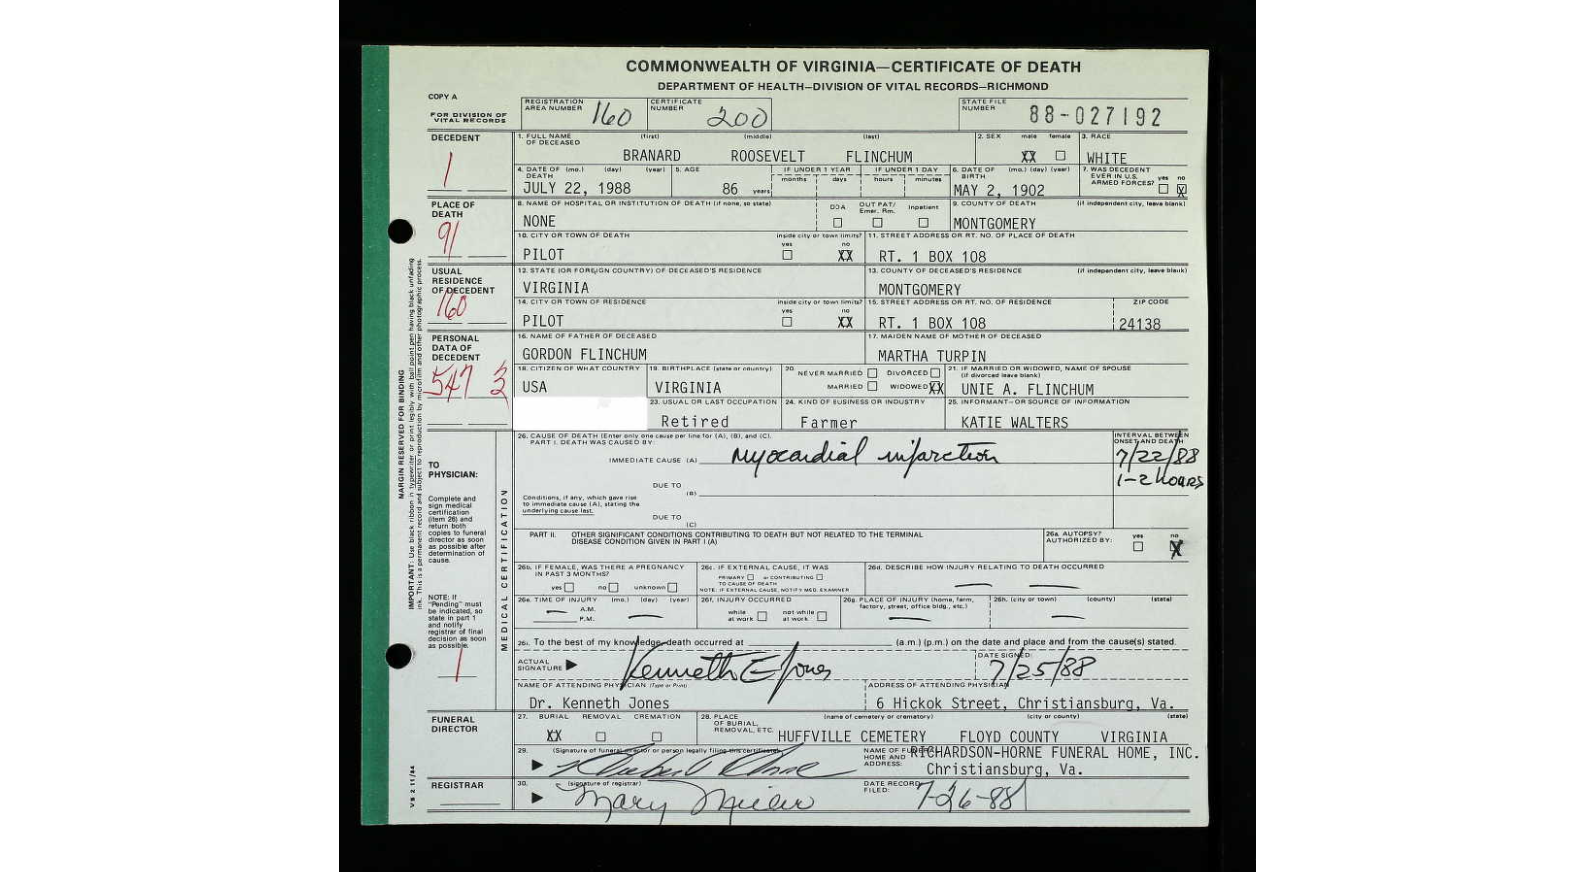 COMMONWEALTH OF VIRGINIA—CERTIFICATE OF DEATH
DEPARTMENT OF HEALTH—DIVISION OF VITAL RECORDS—RICHMOND
COPY A
FOR DIVISION OF VITAL RECORDS
REGISTRATION AREA NUMBER 160
CERTIFICATE NUMBER 200
STATE FILE NUMBER 88-027192
DECEDENT
1
1. FULL NAME OF DECEASED (first) (middle) (last)
BRANARD ROOSEVELT FLINCHUM
2. SEX male female
XX
3. RACE
WHITE
4. DATE OF DEATH (mo.) (day) (year)
JULY 22, 1988
5. AGE
86 years
IF UNDER 1 YEAR months days
IF UNDER 1 DAY hours minutes
6. DATE OF BIRTH (mo.) (day) (year)
MAY 2, 1902
7. WAS DECEDENT EVER IN U.S. ARMED FORCES? yes no
X
PLACE OF DEATH
91
8. NAME OF HOSPITAL OR INSTITUTION OF DEATH (if none, so state)
NONE
DOA OUT PAT/ Emer. Rm. Inpatient
9. COUNTY OF DEATH (if independent city, leave blank)
MONTGOMERY
10. CITY OR TOWN OF DEATH inside city or town limits? yes no
PILOT XX
11. STREET ADDRESS OR RT. NO. OF PLACE OF DEATH
RT. 1 BOX 108
USUAL RESIDENCE OF DECEDENT
160
12. STATE (OR FOREIGN COUNTRY) OF DECEASED'S RESIDENCE
VIRGINIA
13. COUNTY OF DECEASED'S RESIDENCE (if independent city, leave blank)
MONTGOMERY
14. CITY OR TOWN OF RESIDENCE inside city or town limits? yes no
PILOT XX
15. STREET ADDRESS OR RT. NO. OF RESIDENCE ZIP CODE
RT. 1 BOX 108 24138
PERSONAL DATA OF DECEDENT
547 3
16. NAME OF FATHER OF DECEASED
GORDON FLINCHUM
17. MAIDEN NAME OF MOTHER OF DECEASED
MARTHA TURPIN
18. CITIZEN OF WHAT COUNTRY
USA
19. BIRTHPLACE (state or country)
VIRGINIA
20. NEVER MARRIED DIVORCED
MARRIED WIDOWED XX
21. IF MARRIED OR WIDOWED, NAME OF SPOUSE (if divorced leave blank)
UNIE A. FLINCHUM
23. USUAL OR LAST OCCUPATION
Retired
24. KIND OF BUSINESS OR INDUSTRY
Farmer
25. INFORMANT—OR SOURCE OF INFORMATION
KATIE WALTERS
MARGIN RESERVED FOR BINDING
IMPORTANT: Use black ribbon in typewriter or print legibly with ball point pen having black unfading ink. This is a permanent record and subject to reproduction by microfilm and other photographic process.
TO PHYSICIAN:
Complete and sign medical certification (item 26) and return both copies to funeral director as soon as possible after determination of cause.
NOTE: If "Pending" must be indicated, so state in part 1 and notify registrar of final decision as soon as possible.
1
MEDICAL CERTIFICATION
26. CAUSE OF DEATH (Enter only one cause per line for (A), (B), and (C).
PART I. DEATH WAS CAUSED BY:
IMMEDIATE CAUSE (A) Myocardial infarction
INTERVAL BETWEEN ONSET AND DEATH
7/22/88
1-2 hours
DUE TO (B)
Conditions, if any, which gave rise to immediate cause (A), stating the underlying cause last.
DUE TO (C)
PART II. OTHER SIGNIFICANT CONDITIONS CONTRIBUTING TO DEATH BUT NOT RELATED TO THE TERMINAL DISEASE CONDITION GIVEN IN PART I (A)
26a. AUTOPSY? AUTHORIZED BY: yes no
X
26b. IF FEMALE, WAS THERE A PREGNANCY IN PAST 3 MONTHS?
yes no unknown
26c. IF EXTERNAL CAUSE, IT WAS
PRIMARY or CONTRIBUTING
TO CAUSE OF DEATH
NOTE: IF EXTERNAL CAUSE, NOTIFY MED. EXAMINER
26d. DESCRIBE HOW INJURY RELATING TO DEATH OCCURRED
26e. TIME OF INJURY (mo.) (day) (year)
A.M.
P.M.
26f. INJURY OCCURRED
while at work not while at work
26g. PLACE OF INJURY (home, farm, factory, street, office bldg., etc.)
26h. (city or town) (county) (state)
26i. To the best of my knowledge, death occurred at (a.m.) (p.m.) on the date and place and from the cause(s) stated.
ACTUAL SIGNATURE Kenneth E Jones
DATE SIGNED: 7/25/88
NAME OF ATTENDING PHYSICIAN (Type or Print)
Dr. Kenneth Jones
ADDRESS OF ATTENDING PHYSICIAN
6 Hickok Street, Christiansburg, Va.
FUNERAL DIRECTOR
27. BURIAL REMOVAL CREMATION
XX
28. PLACE OF BURIAL, REMOVAL, ETC. (name of cemetery or crematory) (city or county) (state)
HUFFVILLE CEMETERY FLOYD COUNTY VIRGINIA
29. (Signature of funeral director or person legally filing this certificate)
NAME OF FUNERAL HOME AND ADDRESS:
RICHARDSON-HORNE FUNERAL HOME, INC.
Christiansburg, Va.
REGISTRAR
30. (signature of registrar)
Mary
DATE RECORD FILED: 7-26-88
VS 2 11/84